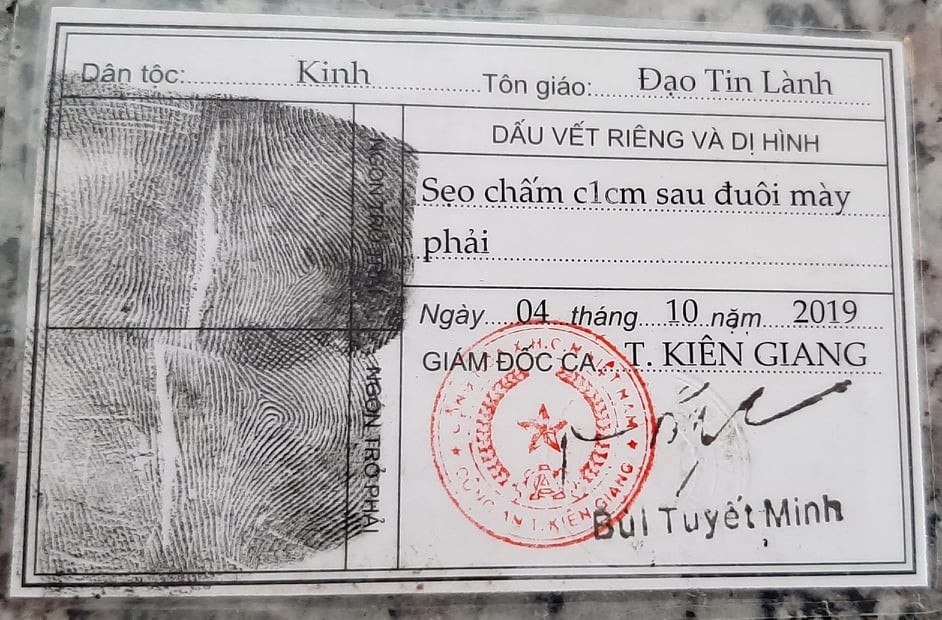 Dân tộc: Kinh Tôn giáo: Đạo Tin Lành
NGÓN TRỎ TRÁI
NGÓN TRỎ PHẢI
DẤU VẾT RIÊNG VÀ DỊ HÌNH
Sẹo chấm c1cm sau đuôi mày
phải
Ngày 04 tháng 10 năm 2019
GIÁM ĐỐC CA. T. KIÊN GIANG
CỘNG HÒA X.H.C.N VIỆT NAM
CÔNG AN T. KIÊN GIANG
Bùi Tuyết Minh